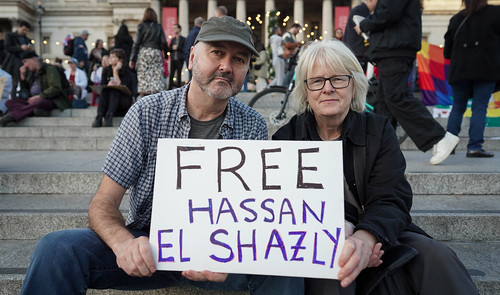 FREE
HASSAN
EL SHAZLY